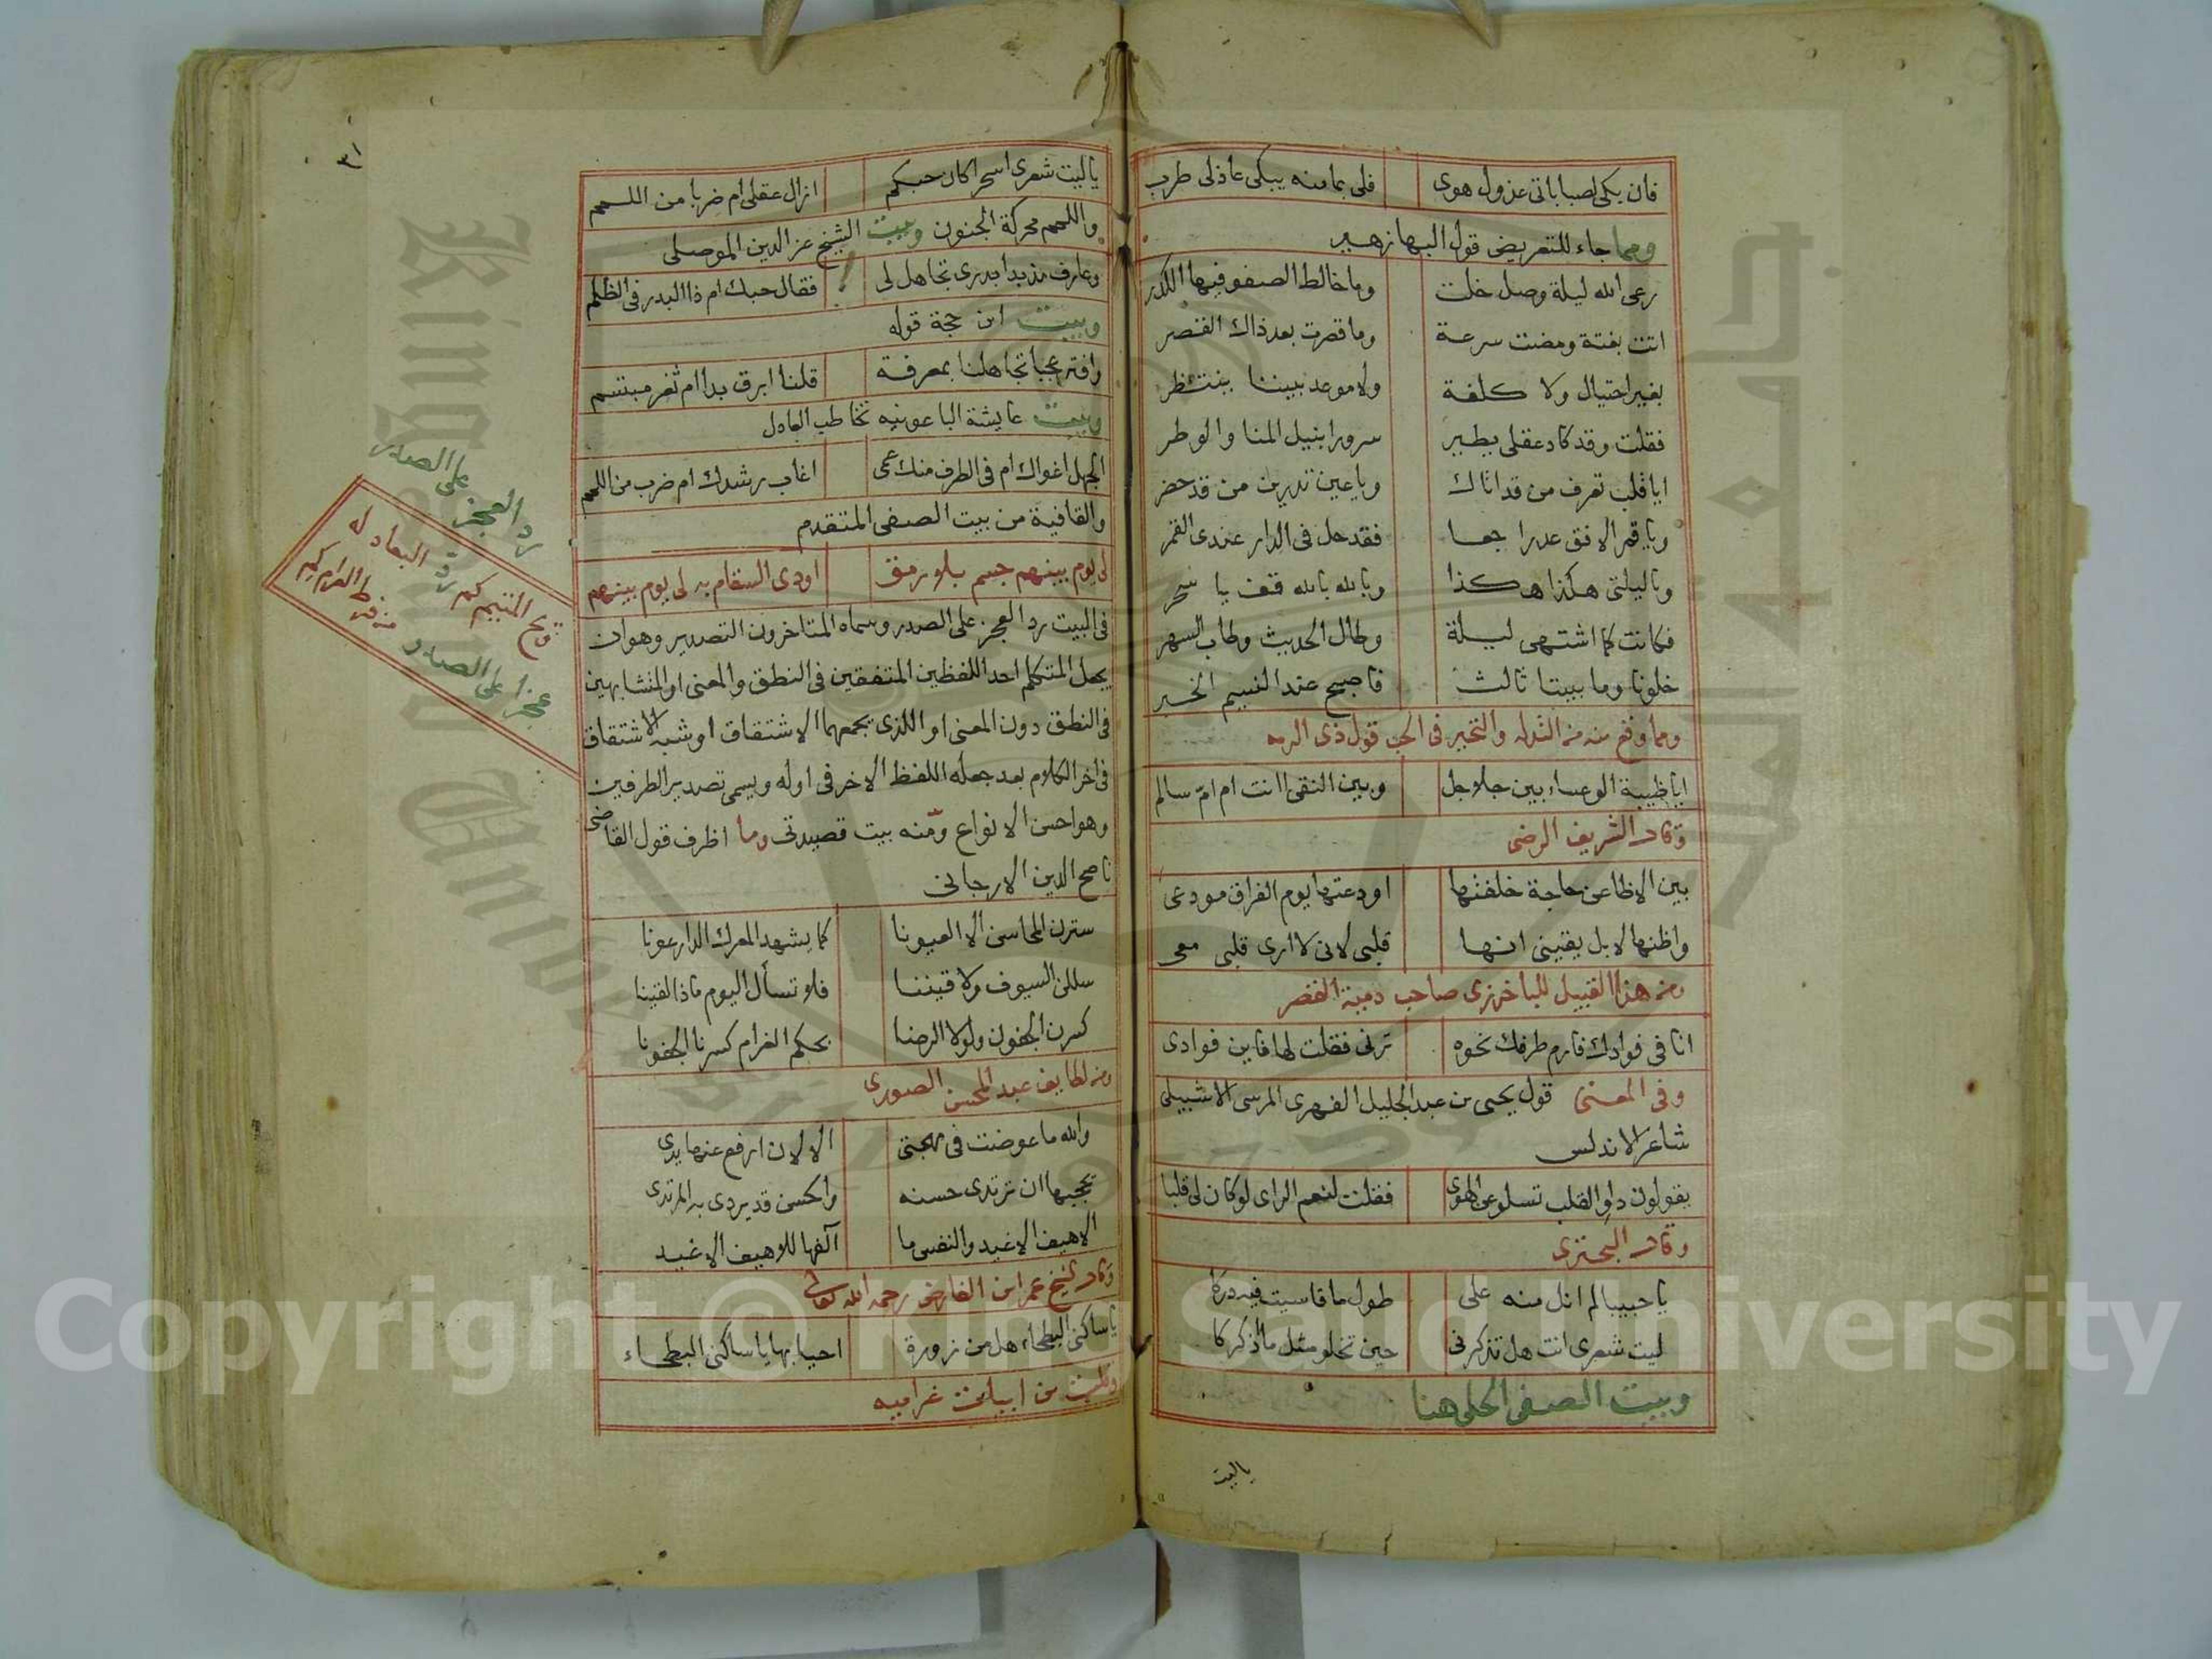 فان بكى لصباباتى عذول هوى فلى بمامنه يبكى عاذلى طرب
ومما جاء للتعريض قول البها زهير
رعى الله ليلة وصل خلت وما خالط الصفو فيها الكدر
اتت بغتة ومضت سرعة وما قصرت بعد ذاك القصر
بغير احتيال ولا كلفة ولا موعد بيننا ينتظر
فقلت وقد كاد عقلى يطير سرورا بنيل المنا والوطر
ايا قلب تعرف من قد اتاك ويا عين تدرين من قد حضر
ويا قمر الافق عد راجعا فقد حل فى الدار عندى القمر
ويا ليلتى هكذا هكذا وبالله بالله قف يا سحر
فكانت كما اشتهى ليلة وطال الحديث وطاب السهر
خلونا وما بيننا ثالث فاصبح عند النسيم الخبر
ومما وقع منه من التدله والتحير فى الحب قول ذى الرمه
ايا ظبية الوعساء بين جلاجل وبين النقى اانت ام ام سالم
وقال الشريف الرضى
بين الاظاعن حاجة خلفتها اودعتها يوم الفراق مودعى
واظنها لا بل يقينى انها قلبى لانى لا ارى قلبى معى
ومن هذا القبيل للباخرزى صاحب دمية القصر
انا فى فوادك فارم طرفك نحوه ترنى فقلت لها فاين فوادى
وفى المعنى قول يحيى بن عبد الجليل الفهرى المرسى الاشبيلى
شاعر الاندلس
يقولون داو القلب تسلو عن الهوى فقلت لنعم الراى لو كان لى قلبا
وقال البحترى
يا حبيبا لم انل منه على طول ما قاسيت فيه دركا
ليت شعرى انت هل تذكرنى حين تخلو مثل ما اذكركا
وبيت الصفى الحلى هنا
ياليت
٣١
ياليت شعرى اسحرا كان حبكم ازال عقلى ام ضربا من اللمم
واللمم محركة الجنون وبيت الشيخ عز الدين الموصلى
وعارف مذ بدا بدرى تجاهل لى فقال حبك ام ذا البدر فى الظلم
وبيت ابن حجة قوله
وافتر عجبا تجاهلنا بمعرفة قلنا ابرق بدا ام ثغر مبتسم
وبيت عايشة الباعونيه تخاطب العادل
الجهل اغواك ام فى الطرف منك عمى اغاب رشدك ام ضرب من اللمم
والقافية من بيت الصفى المتقدم
لى يوم بينهم جسم بلا رمق اودى السقام به لى يوم بينهم
فى البيت رد العجز على الصدر وسماه المتاخرون التصدير وهو ان
يجعل المتكلم احد اللفظين المتفقين فى النطق والمعنى او المتشابهين
فى النطق دون المعنى او اللذى يجمعهما الاشتقاق او شبه الاشتقاق
فى اخر الكلام بعد جعله اللفظ الاخر فى اوله ويسمى تصدير الطرفين
وهو احسن الانواع ومنه بيت قصيدتى وما اظرف قول القاضى
ناصح الدين الارجانى
سترن المحاسن الا العيونا كما يشهد المعرك الدارعونا
سللن السيوف ولاقيننا فلا تسأل اليوم ماذا لقينا
كسرن الجفون ولولا الرضا بحكم الغرام كسرنا الجفونا
ومن لطايف عبد المحسن الصورى
والله ما عوضت فى مهجتى الا لان ارفع عنها يدى
يعجبها ان ترتدى حسنه والحسن قد يردى به المرتدى
الاهيف الاغيد والنفس ما آلفها للاهيف الاغيد
وقال الشيخ عمر ابن الفارض رحمه الله تعالى
يا ساكنى البطحاء هل من زورة احيا بها يا ساكنى البطحاء
وقلت من ابيات غراميه
رد العجز على الصدر
ويح المتيم كم رد البعاد له
عجزا على الصدر من فرط الغرام كم
Copyright © King Saud University